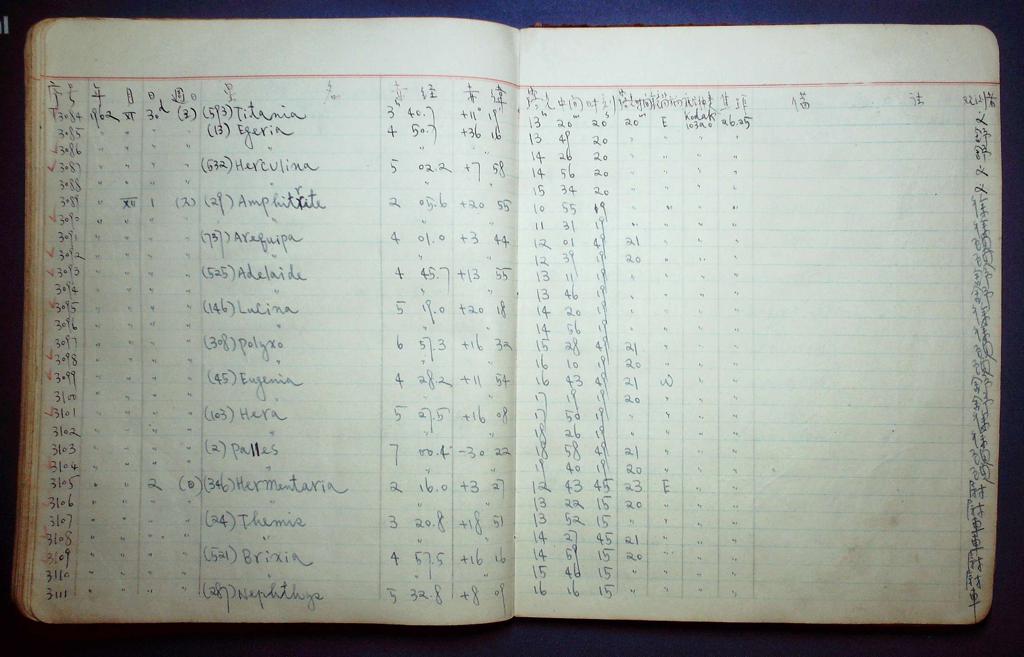 序号 年 月 日 週日 星 名 赤 经 赤 緯 備 註
3084 1962 XI 30d (3) (593) Titania 3h 40.7 +11° 19' 13h 20m 20s 20m E Kodak 103a0 26.25
3085 " " " (13) Egeria 4 50.7 +36 16 13 49 20 " " " "
3086 " " " " " 14 26 20 " " " "
3087 " " " (532) Herculina 5 02.2 +7 58 14 56 20 " " " "
3088 " " " " " 15 34 20 " " " "
3089 " XII 1 (2) (29) Amphitrete 2 05.6 +20 55 10 55 19 " " " "
3090 " " " " " 11 31 19 " " " "
3091 " " " (737) Arequipa 4 01.0 +3 44 12 01 49 21 " " "
3092 " " " " " 12 39 19 20 " " "
3093 " " " (525) Adelaide 4 45.7 +13 55 13 11 19 " " " "
3094 " " " " " 13 46 19 " " " "
3095 " " " (146) Lucina 5 19.0 +20 18 14 20 19 " " " "
3096 " " " " " 14 56 19 " " " "
3097 " " " (308) Polyxo 6 57.3 +16 32 15 28 49 21 " " "
3098 " " " " " 16 10 19 20 " " "
3099 " " " (45) Eugenia 4 28.2 +11 54 16 43 49 21 W " "
3100 " " " " " 17 19 19 20 " " "
3101 " " " (103) Hera 5 27.5 +16 08 17 50 19 " " " "
3102 " " " " " 18 26 19 " " " "
3103 " " " (2) Palles 7 00.4 -30 22 18 58 49 21 " " "
3104 " " " " " 19 40 19 20 " " "
3105 " " 2 (0) (346) Hermentaria 2 16.0 +3 27 12 43 45 23 E " "
3106 " " " " " 13 22 15 20 " " "
3107 " " " (24) Themis 3 20.8 +18 51 13 52 15 " " " "
3108 " " " " " 14 27 45 21 " " "
3109 " " " (521) Brixia 4 57.5 +16 16 14 59 15 20 " " "
3110 " " " " " 15 46 15 " " " "
3111 " " " (287) Nephthys 5 32.8 +8 09 16 16 15 " " " "